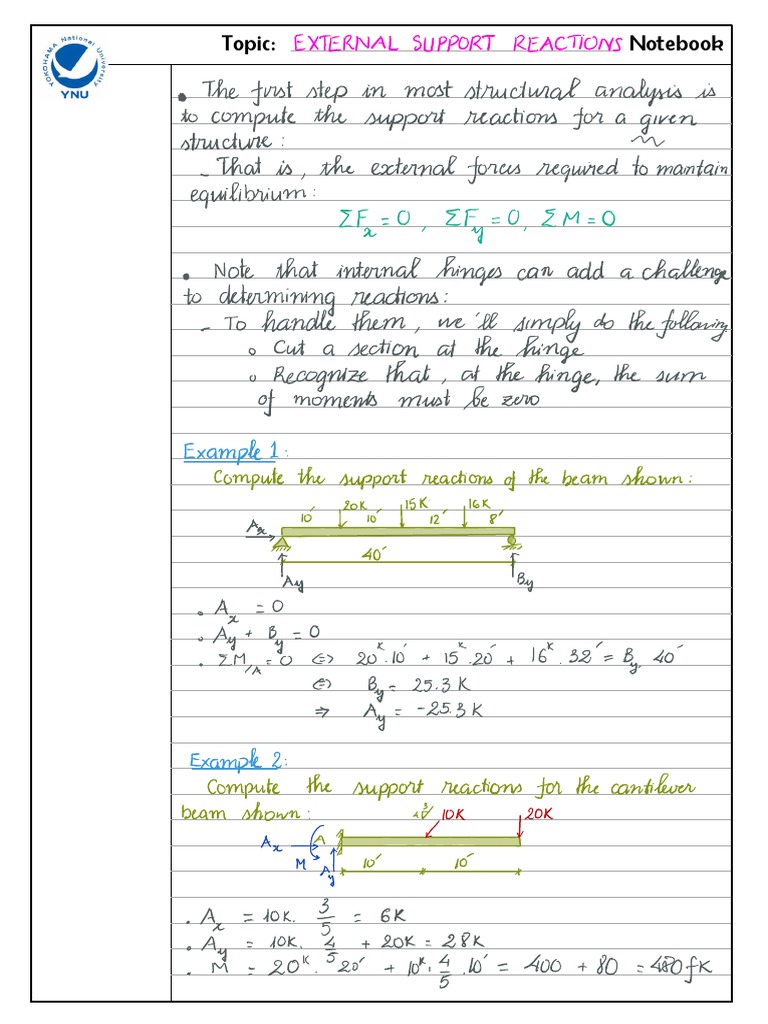 YOKOHAMA National University
YNU
Topic: EXTERNAL SUPPORT REACTIONS Notebook
• The first step in most structural analysis is
to compute the support reactions for a given
structure:
- That is, the external forces required to mantain
equilibrium:
ΣFx = 0, ΣFy = 0, ΣM = 0
• Note that internal hinges can add a challenge
to determining reactions:
- To handle them, we'll simply do the following
o Cut a section at the hinge
o Recognize that, at the hinge, the sum
of moments must be zero
Example 1:
Compute the support reactions of the beam shown:
20K 15K 16K
10' 10' 12' 8'
Ax
40'
Ay By
• Ax = 0
• Ay + By = 0
• ΣM/A = 0 ⇔ 20ᴷ.10' + 15ᴷ.20' + 16ᴷ.32' = By.40'
⇔ By = 25.3K
⇒ Ay = -25.3K
Example 2:
Compute the support reactions for the cantilever
beam shown:
3
4
10K 20K
Ax A
M Ay 10' 10'
• Ax = 10K. 3/5 = 6K
• Ay = 10K. 4/5 + 20K = 28K
• M = 20ᴷ. 20' + 10ᴷ. 4/5 .10' = 400 + 80 = 480fK